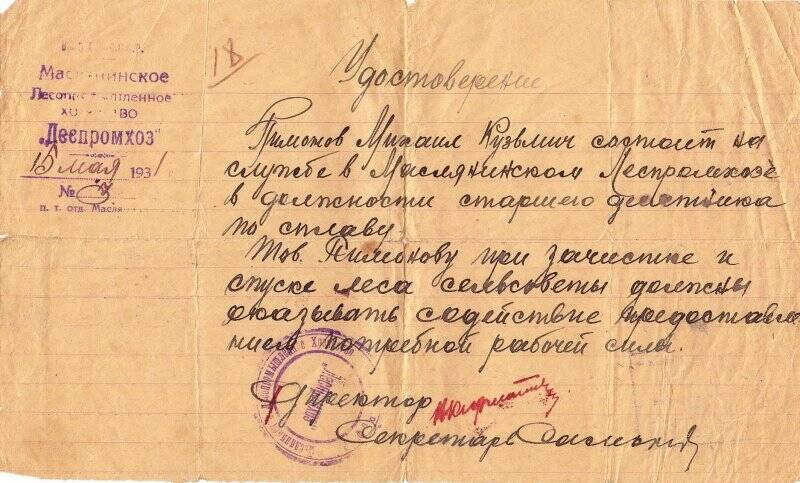 18
Маслянинское
Лесопромышленное
хозяйство
„Леспромхоз"
15 мая 1931 г.
№
п. т. отд. Масля
Удостоверение
Пимонов Михаил Кузьмич состоит на
службе в Маслянинском Леспромхозе
в должности старшего десятника
по сплаву.
Тов. Пимонову при зачистке и
спуске леса сельсоветы должны
оказывать содействие предоставле
нием потребной рабочей силы.
Директор
Секретарь
Леспромхоз